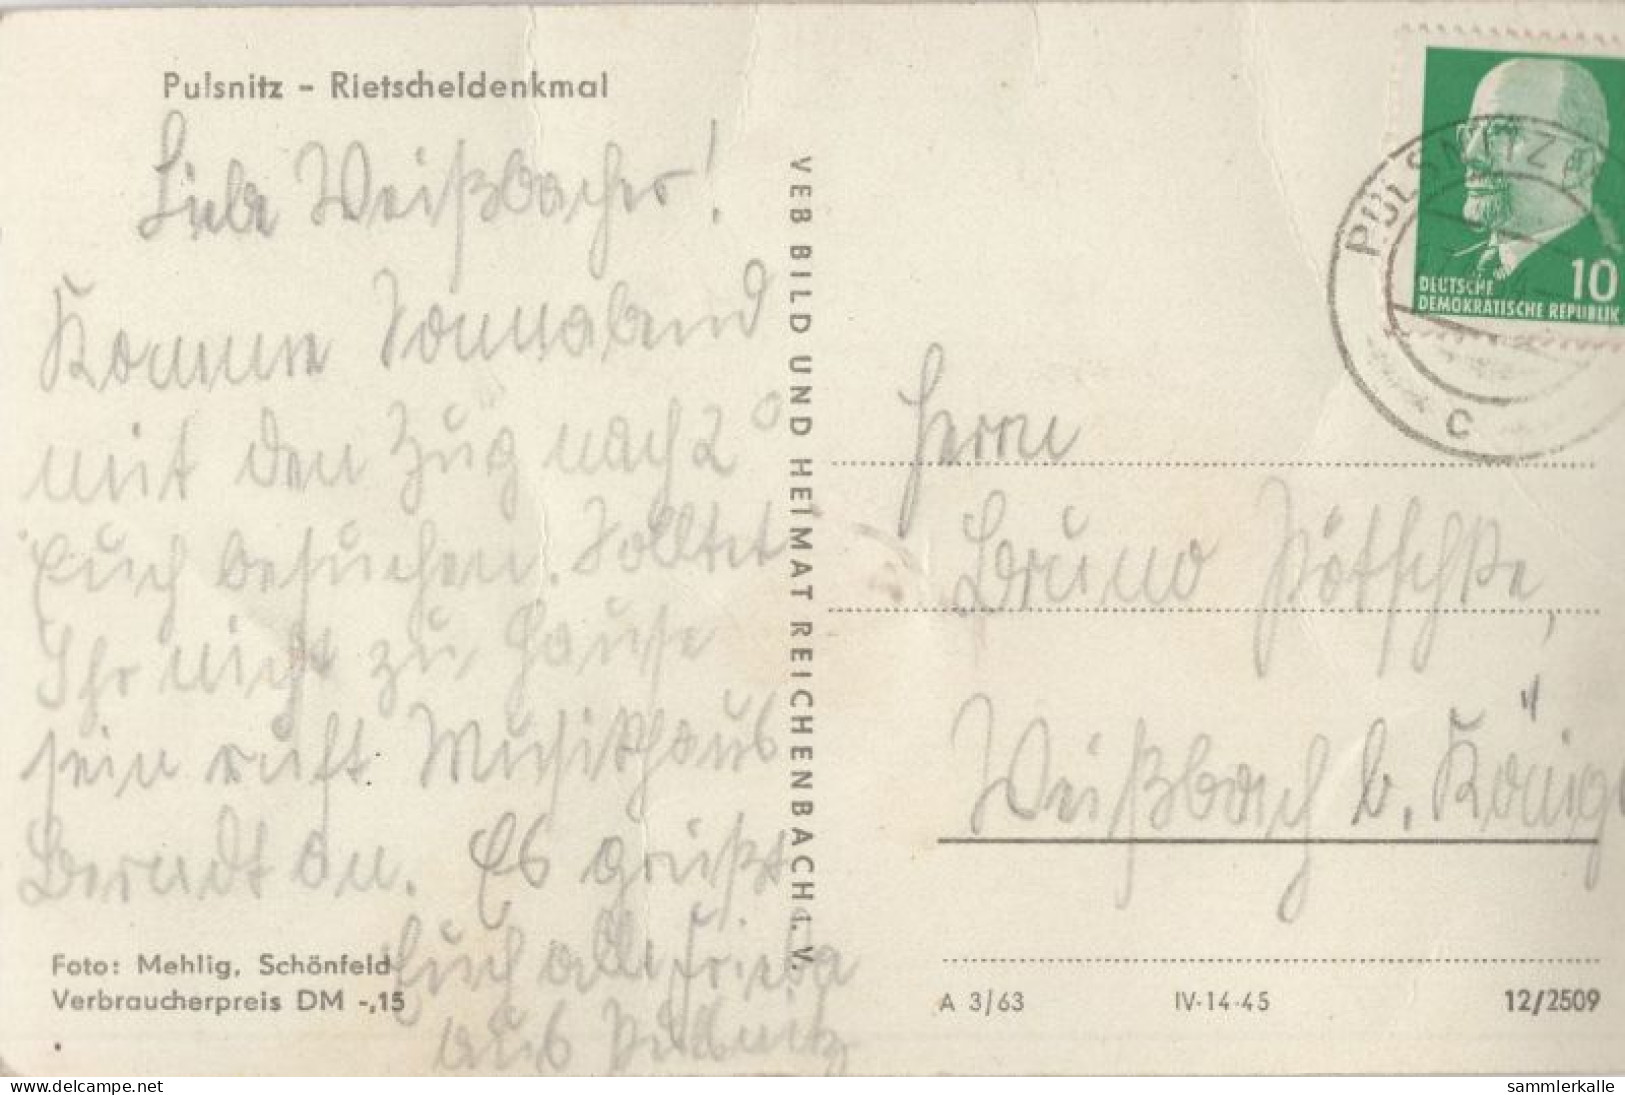 Pulsnitz - Rietscheldenkmal
Liebe Weißbacher!
Komme Sonnabend
mit den Zug nach 2
Euch besuchen. Solltet
Ihr nicht zu Hause
sein ruft Musikhaus
Berndt an. Es grüßt
Euch alle Frieda
aus Pulsnitz
Foto: Mehlig, Schönfeld
Verbraucherpreis DM -,15
VEB BILD UND HEIMAT REICHENBACH i. V.
PULSNITZ
C
10
DEUTSCHE
DEMOKRATISCHE REPUBLIK
Herrn
Bruno Pötschke,
Weißbach b. Königs
A 3/63 IV-14-45 12/2509
www.delcampe.net
sammlerkalle